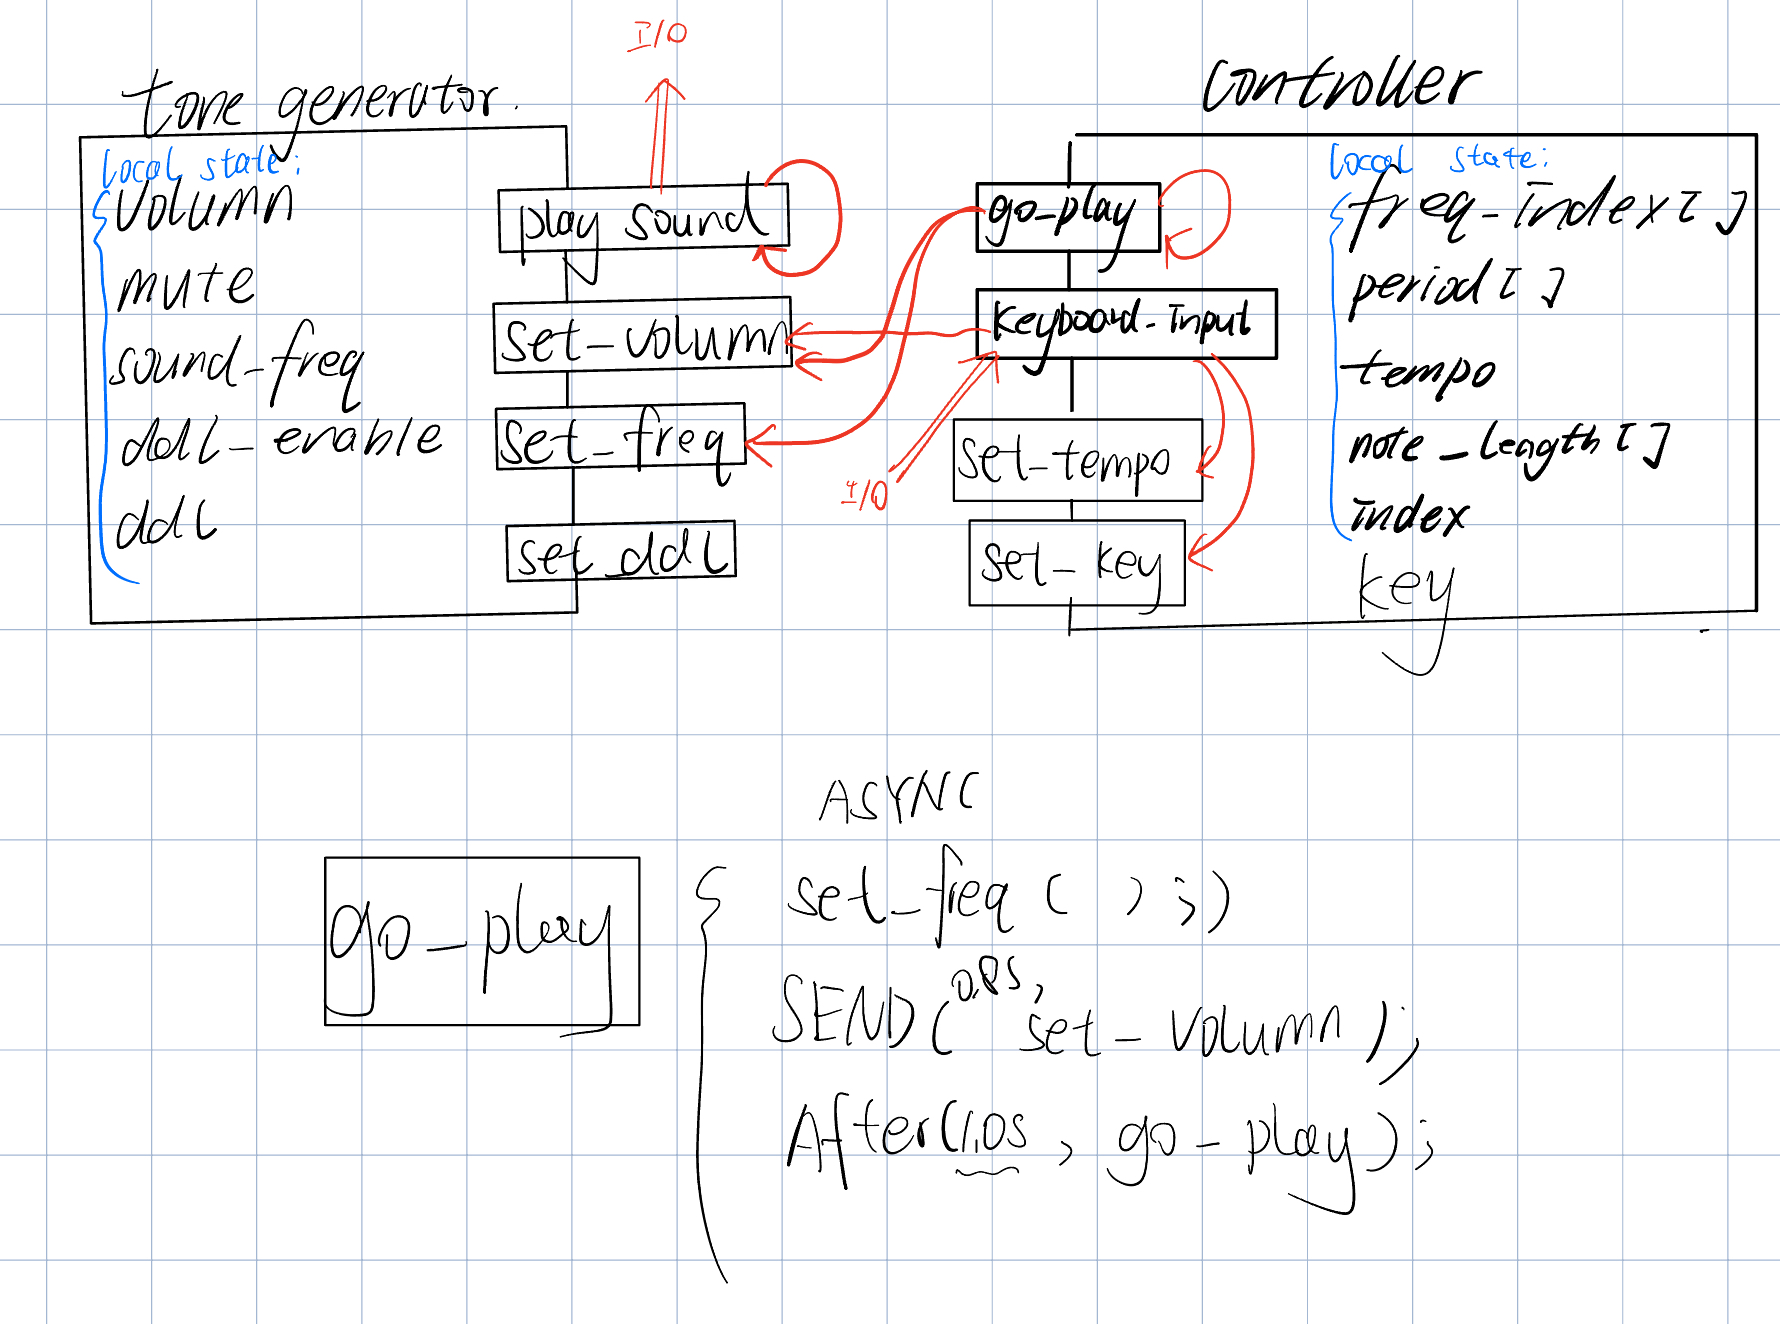 I/O
tone generator.
local state:
volumn
mute
sound_freq
ddl_enable
ddl
play sound
set_volumn
set_freq
set_ddl
controller
go_play
keyboard_Input
set_tempo
set_key
I/O
local state:
freq_index[]
period[]
tempo
note_length[]
index
key
go_play
ASYNC
set_freq ( ) ;)
SEND(0.8s, set_volumn);
After(1.0s, go_play);